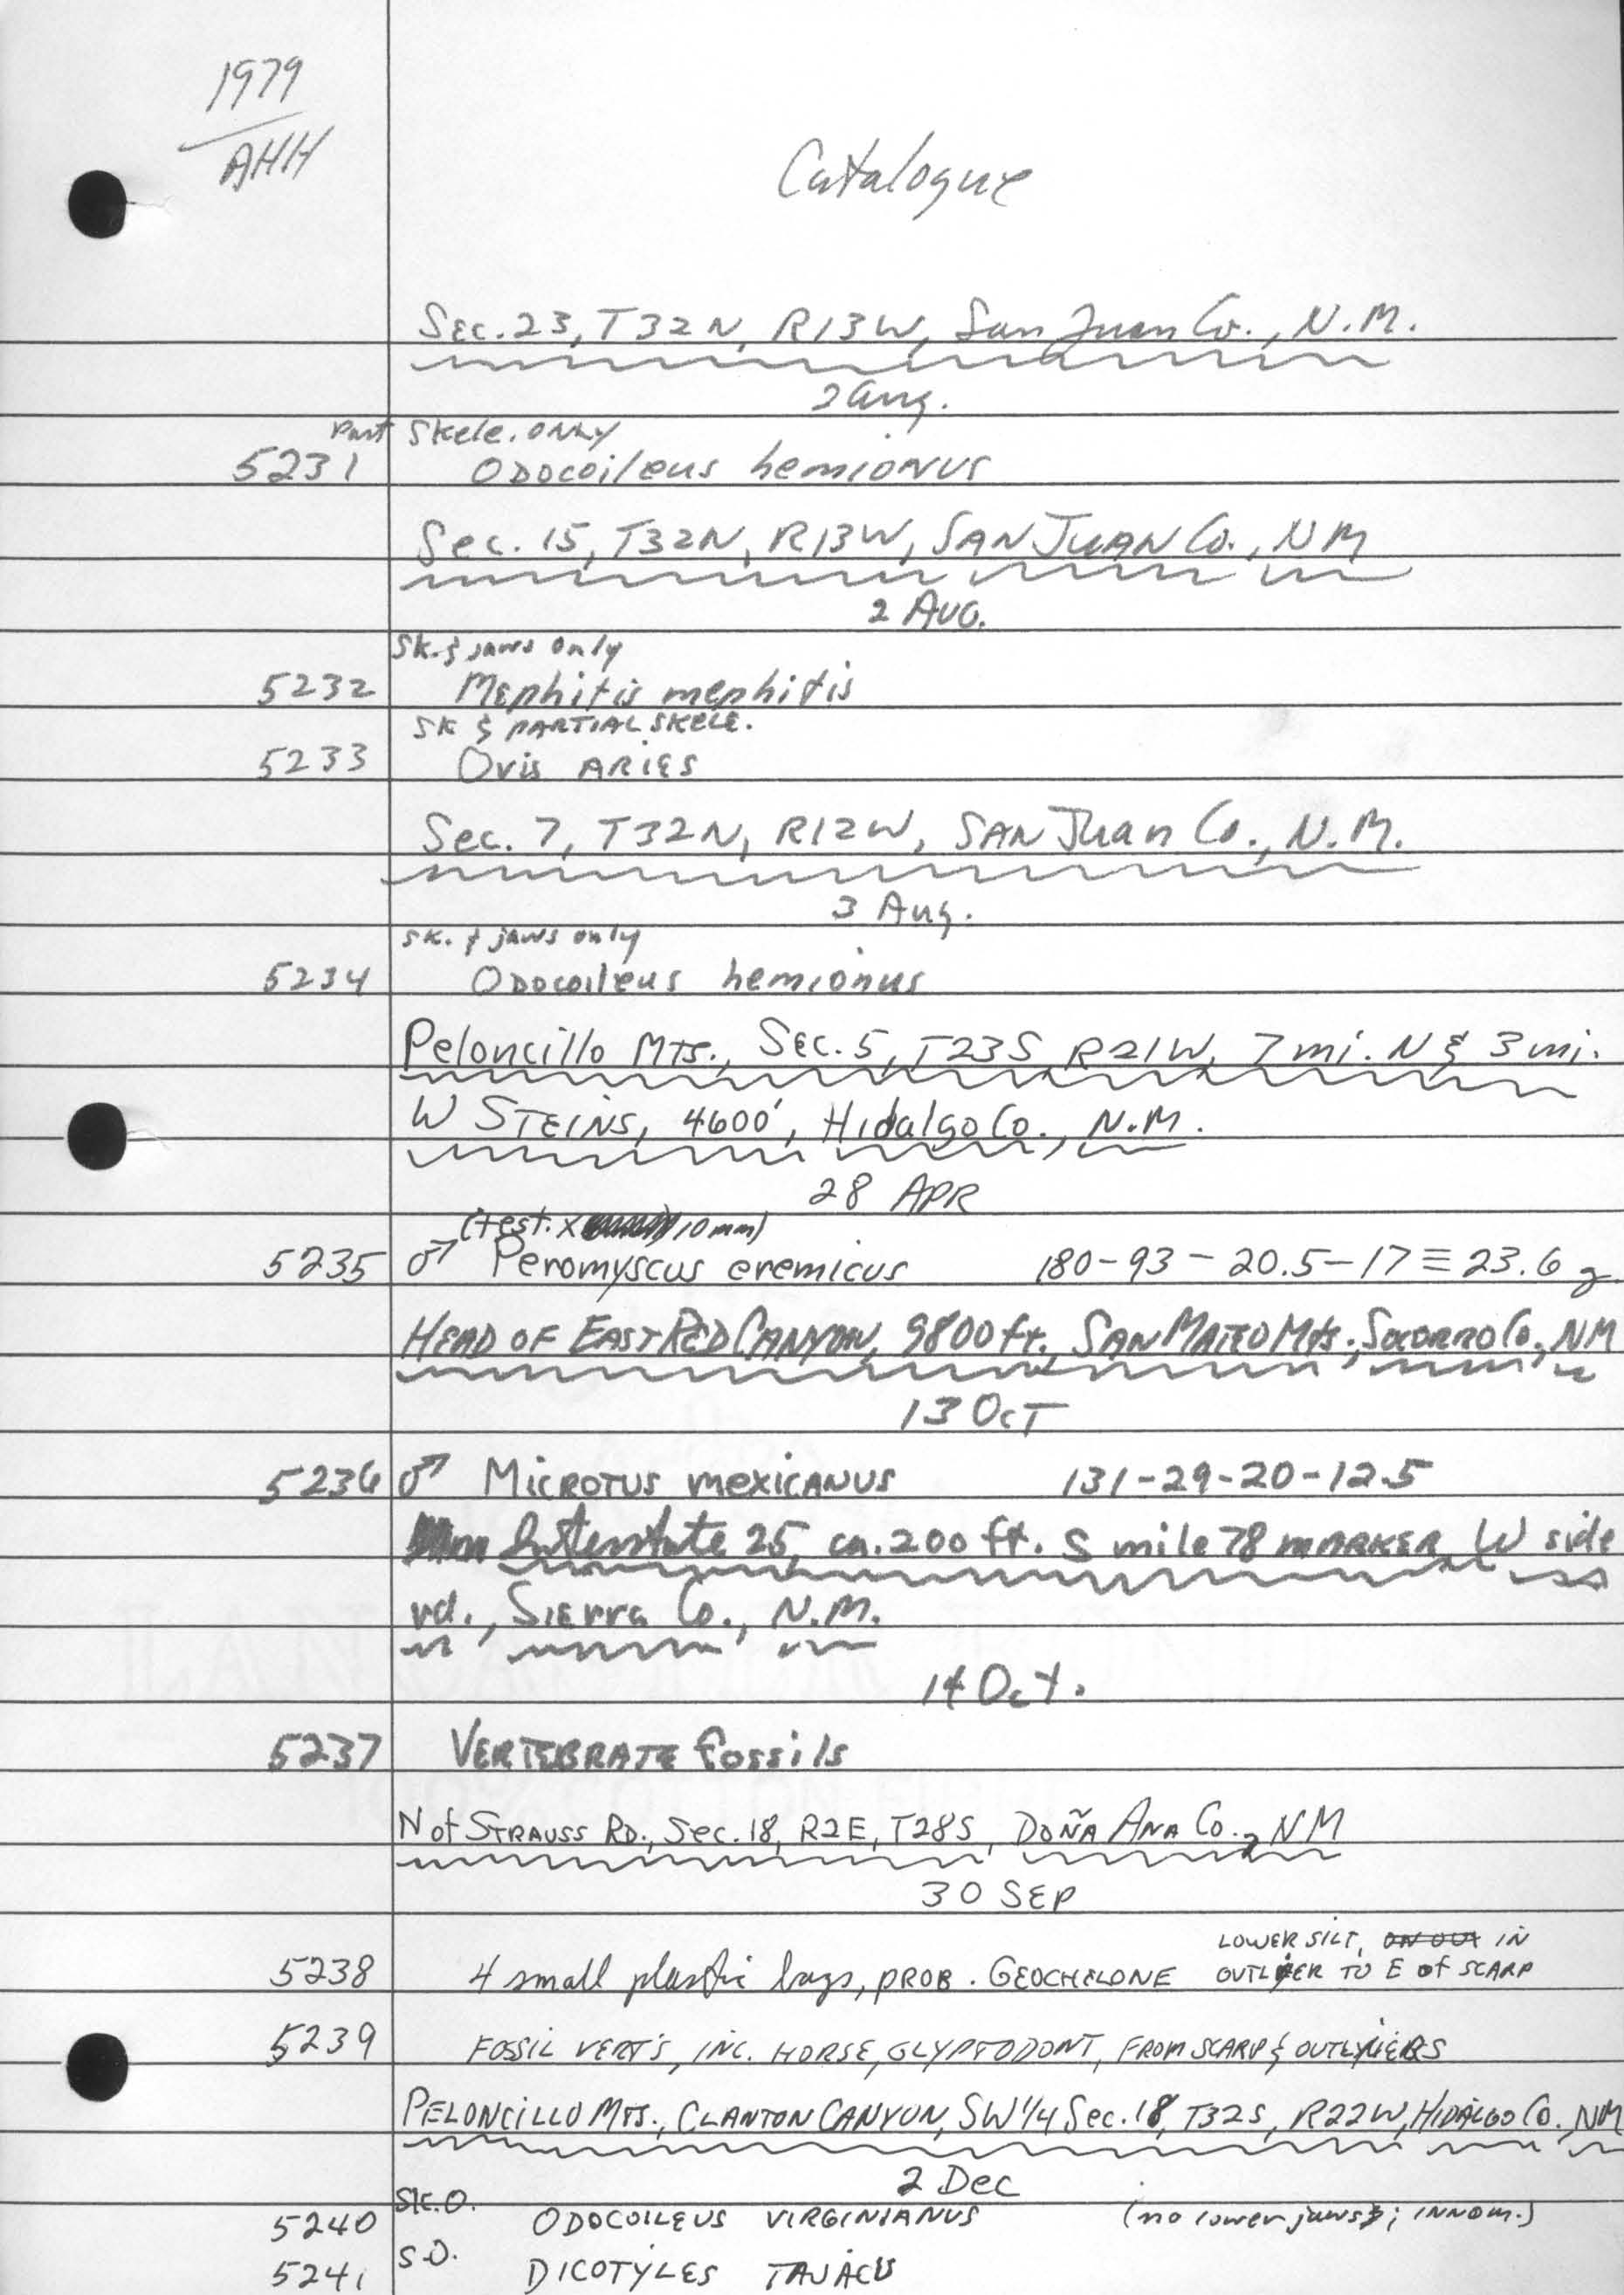 1979
AHH
Catalogue
Sec. 23, T32N, R13W, San Juan Co., N.M.
2 Aug.
Part Skele. only
5231 Odocoileus hemionus
Sec. 15, T32N, R13W, SAN JUAN Co., NM
2 AUG.
Sk. & jaws only
5232 Mephitis mephitis
SK & PARTIAL SKELE.
5233 Ovis ARIES
Sec. 7, T32N, R12W, SAN Juan Co., N.M.
3 Aug.
SK. & jaws only
5234 Odocoileus hemionus
Peloncillo Mts., Sec. 5, T23S, R21W, 7 mi. N & 3 mi.
W STEINS, 4600', Hidalgo Co., N.M.
28 APR
(test. X 10 mm)
5235 ♂ Peromyscus eremicus 180-93-20.5-17≡23.6 g
HEAD OF EAST RED CANYON, 9800 ft., SAN MATEO Mts., SOCORRO Co., NM
13 OCT
5236 ♂ MICROTUS mexicanus 131-29-20-12.5
Interstate 25, ca. 200 ft. S mile 78 MARKER, W side
rd., Sierra Co., N.M.
14 Oct.
5237 VERTEBRATE fossils
N of STRAUSS RD., Sec. 18, R2E, T28S, DOÑA ANA Co., NM
30 SEP
LOWER SILT, ON OUT IN
5238 4 small plastic bags, PROB. GEOCHELONE OUTLIER TO E of SCARP
5239 FOSSIL VERT'S, INC. HORSE, GLYPTODONT, FROM SCARP & OUTLIERS
PELONCILLO MTS., CLANTON CANYON, SW 1/4 Sec. 18, T32S, R22W, HIDALGO Co., NM
2 Dec
5240 SK.O. ODOCOILEUS VIRGINIANUS (no lower jaws; INNOM.)
5241 S.O. DICOTYLES TAJACU